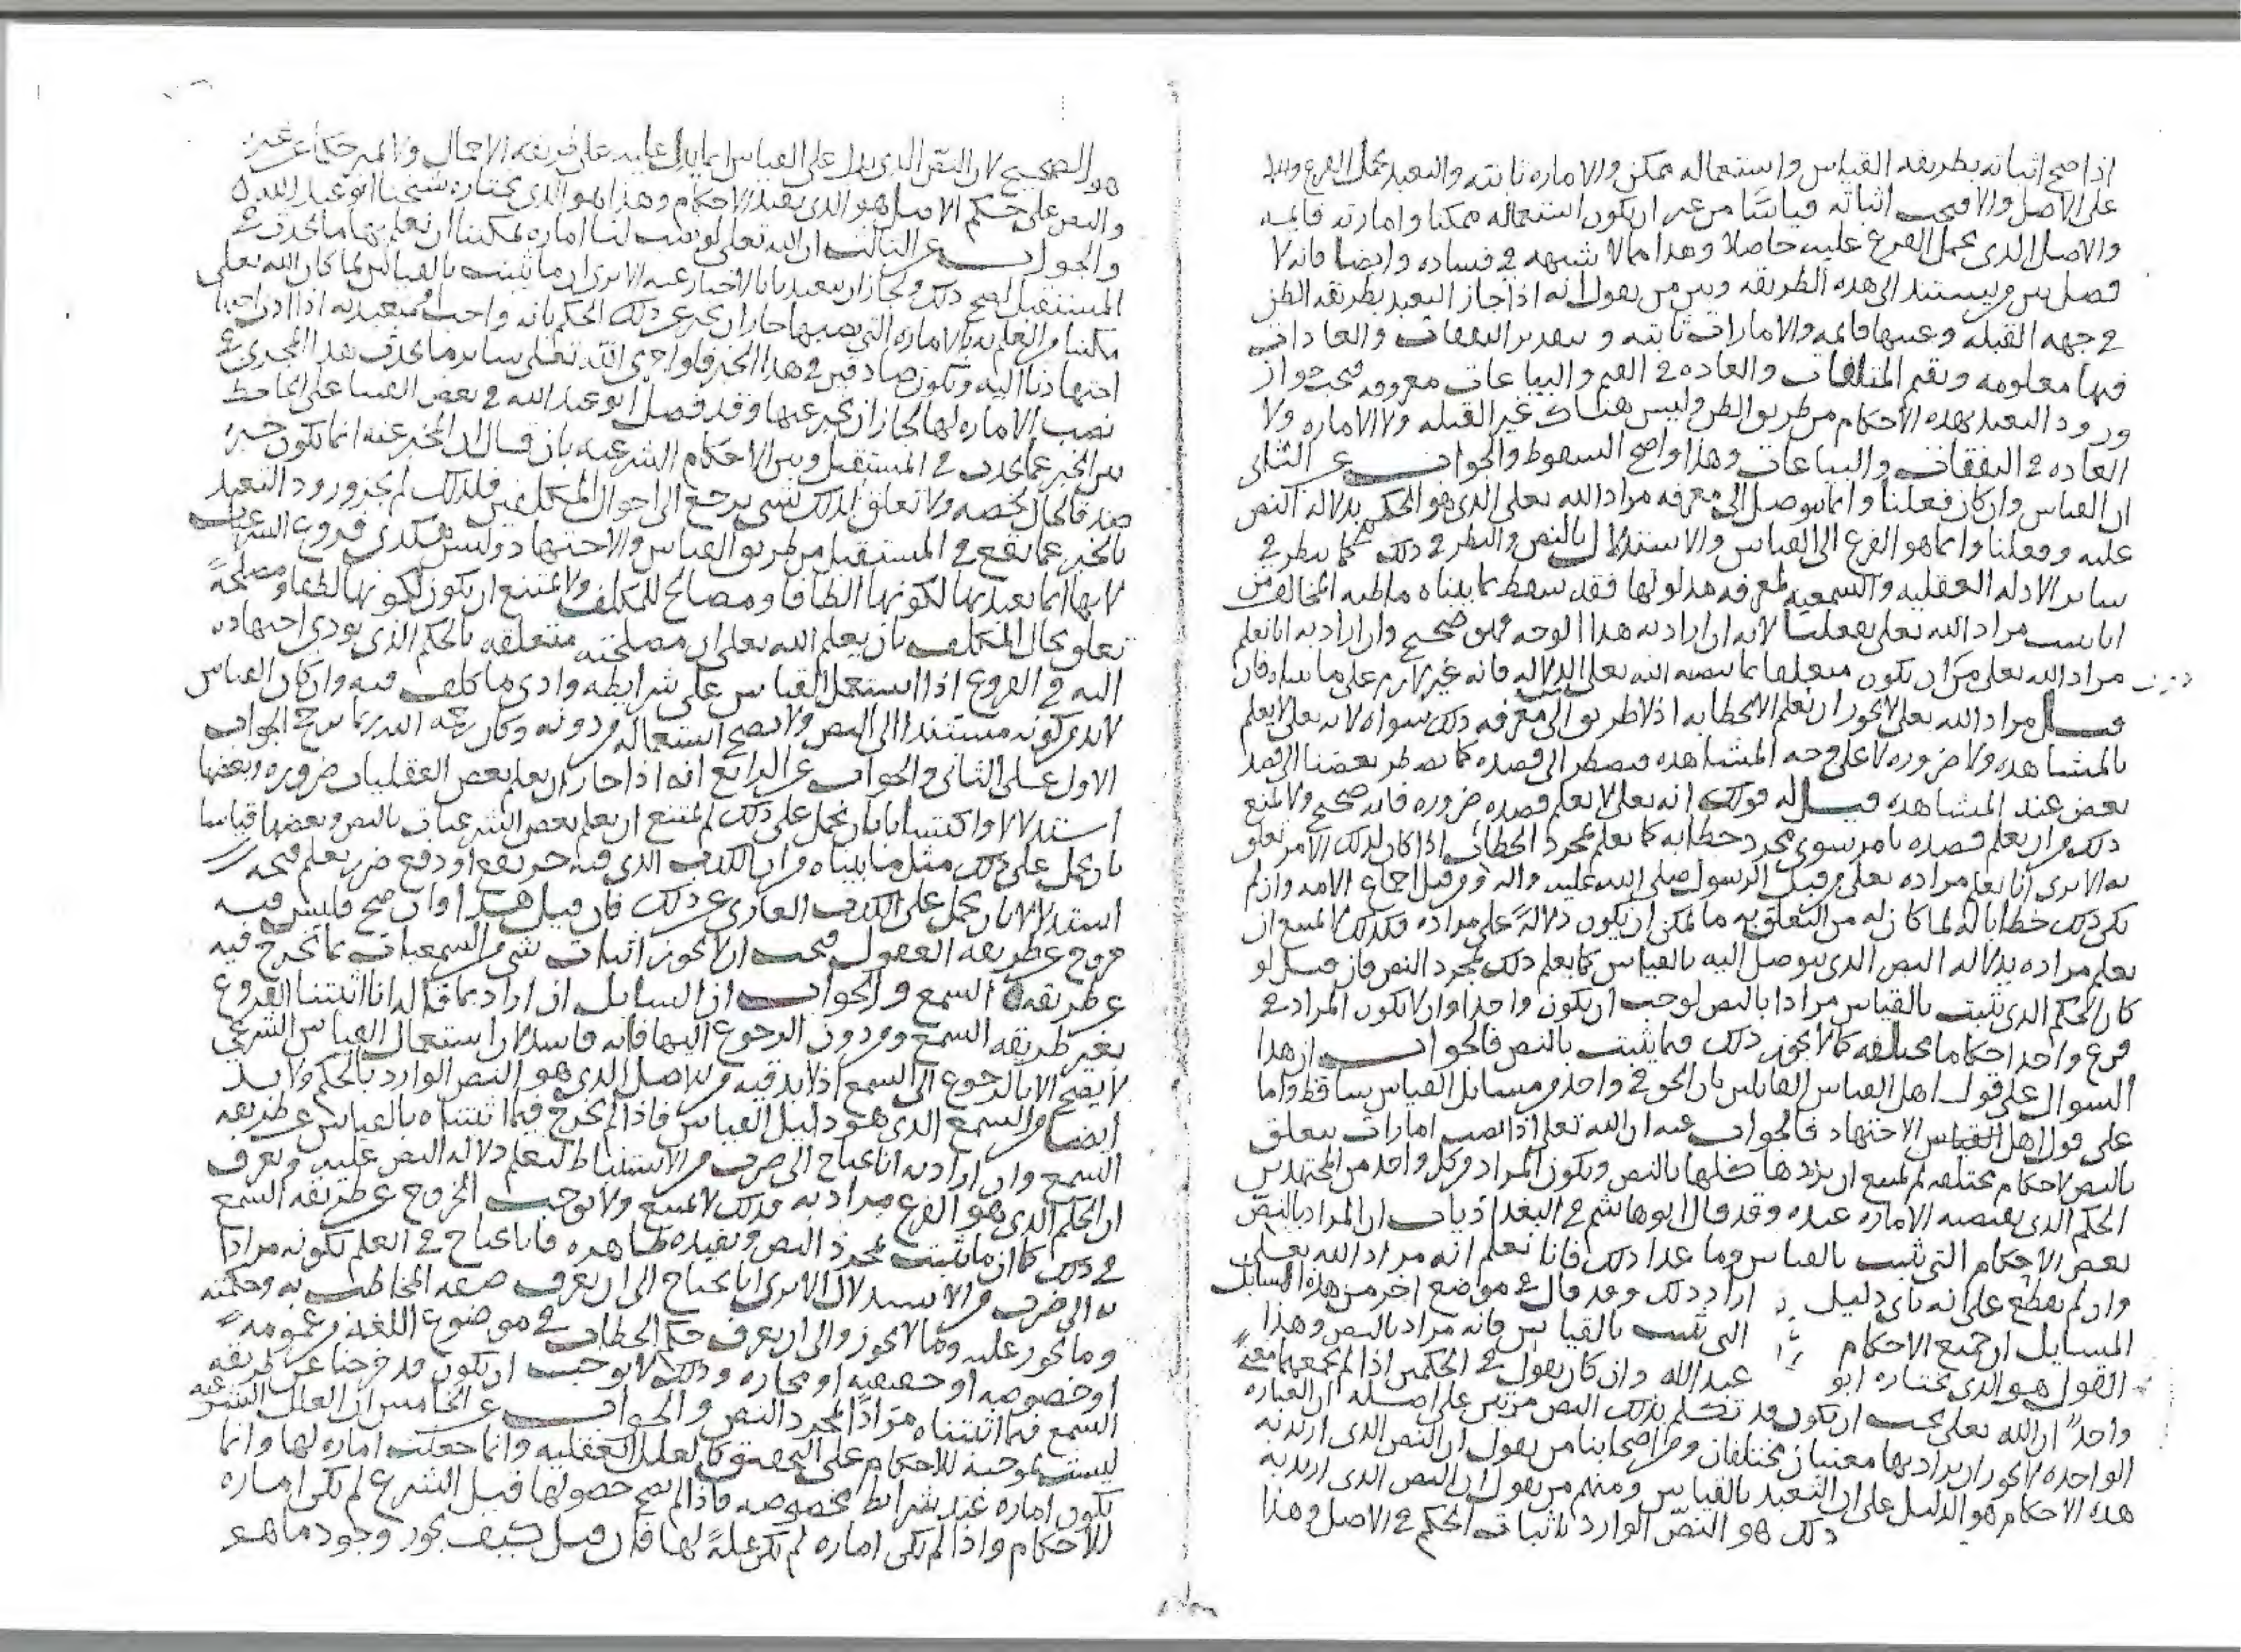 اذا صح اثباته بطريقه القياس واستعماله ممكن والاماره ثابته والتعبد بحمل الفرع
على الاصل والا فيجب اثباته قياسا من غير ان يكون استعماله ممكنا وامارته قايمه
والاصل الذي يحمل الفرع عليه حاصلا وهذا مما لا شبهه في فساده وايضا فانه لا
فصل بين من يستند الى هذه الطريقه وبين من يقول انه اذا جاز التعبد بطريقه الظن
في جهه القبله وعينها قايمه والامارات ثابته وتقدير النفقات والعادات
فيها معلومه وقيم المتلفات والعاده في القيم والبياعات معروفه فيجب جواز
ورود التعبد بهذه الاحكام من طريق الظن وليس هناك غير القبله ولا الاماره ولا
العاده في النفقات والبياعات وهذا واضح السقوط والجواب عن الثاني
ان القياس وان كان فعلنا وانما نتوصل الى معرفه مراد الله تعلى الذي هو الحكم بدلاله النص
عليه وفعلنا وانما هو الفزع الى القياس والاستدلال بالنص والنظر في ذلك كما ننظر في
ساير الادله العقليه والسمعيه لمعرفه مدلولها فقد سقط بما بيناه ما ظنه المخالف من
انا نثبت مراد الله تعلى بفعلنا لانه ان اراد به هذا الوجه فهو صحيح وان اراد به انا نعلم
مراد الله تعلى من ان يكون متعلقا بما نصبه الله تعلى من الدلاله فانه غير لازم على ما بيناه فان
قيل مراد الله تعلى لا يجوز ان نعلم الا بخطابه اذ لا طريق الى معرفه ذلك سواه لانه تعلى لا يعلم
بالمشاهده ولا ضروره لا على وجه المشاهده فيضطر الى قصده كما يضطر بعضنا الى قصد
بعض عند المشاهده قيل له قولك انه تعلى لا يعلم قصده ضروره فانه صحيح ولا يمنع
ذلك من ان يعلم قصده بامر سوى مجرد خطابه كما يعلم بمجرد الخطاب اذا كان لذلك الامر تعلق
به الا ترى انا نعلم مراده تعلى من قبل الرسول صلى الله عليه واله ومن قبل اجماع الامه وان لم
يكن ذلك خطابا له لما كان له من التعلق به ما يمكن ان يكون دلالة على مراده فكذلك لا يمتنع ان
يعلم مراده بدلاله النص الذي يتوصل اليه بالقياس كما يعلم ذلك بمجرد النص فان قيل لو
كان الحكم الذي يثبت بالقياس مرادا بالنص لوجب ان يكون واحدا وان لا يكون المراد في
فرع واحد احكاما مختلفه كما لا يجوز ذلك فيما يثبت بالنص فالجواب ان هذا
السوال على قول اهل القياس القايلين بان الحق في واحد من مسايل القياس ساقط واما
على قول اهل القياس الاجتهاد فالجواب عنه ان الله تعلى اذا نصب امارات يتعلق
بالنص لاحكام مختلفه لم يمتنع ان يريدها كلها بالنص ويكون المراد من كل واحد من المجتهدين
الحكم الذي يقتضيه الاماره عنده وقد قال ابو هاشم في البغداذيات ان المراد بالنص
بعض الاحكام التي تثبت بالقياس وما عدا ذلك فانا نعلم انه مراد الله تعلى
وان لم نقطع على انه باي دليل اراد ذلك وقد قال في مواضع اخر من هذه المسايل
المسايل ان جميع الاحكام التي تثبت بالقياس فانه مراد بالنص وهذا
القول هو الذي يختاره ابو عبد الله وان كان يقول في الحكمين اذا لم يجمعهما معنى
واحد ان الله تعلى يجب ان يكون قد تكلم بذلك النص مرتين على اصله ان العباره
الواحده لا يجوز ان يراد بها معنيان مختلفان ومن اصحابنا من يقول ان النص الذي اريد به
هذه الاحكام هو الدليل على ان التعبد بالقياس ومنهم من يقول ان النص الذي اريد به
ذلك هو النص الوارد باثبات الحكم في الاصل وهذا
هو الصحيح لان النص الذي يدل على القياس انما يدل عليه على طريقه الاجمال
والنص على حكم الاصل هو الذي يفيد الاحكام وهذا هو الذي يختاره شيخنا ابو عبد الله
والجواب عن الثالث ان الله تعلى لو نصب لنا اماره يمكننا ان نعلم بها ما يحدث في
المستقبل لصح ذلك ولجاز ان يتعبدنا بالاخبار عنه الا ترى ان ما يثبت بالقياس لما كان الله تعلى
مكننا من العلم به بالاماره التي نصبها جاز ان نخبر عن ذلك الحكم بانه واجب متعبد به اذا ادى
اجتهادنا اليه ونكون صادقين في هذا الخبر فلو اجرى الله تعلى ساير ما يحدث هذا المجرى في
نصب الاماره لها لجاز ان نخبر عنها وقد فصل ابو عبد الله في نقض الفتيا على الجاحظ
بين الخبر عما يحدث في المستقبل وبين الاحكام الشرعيه بان قال ان المخبر عنه انما يكون خبره
صدقا لحال تخصه ولا تعلق لذلك بشي يرجع الى احوال المكلفين فلذلك لم يجز ورود التعبد
بالخبر عما يقع في المستقبل من طريق القياس والاجتهاد وليس هكذى فروع الشرعيات
لانها انما تعبد بها لكونها الطافا ومصالح للمكلف ولا يمتنع ان يكون لكونها لطفا ومصلحة
تعلق بحال المكلف بان يعلم الله تعلى ان مصلحته متعلقه بالحكم الذي يودي اجتهاده
اليه في الفروع اذا استعمل القياس على شرايطه وادى ما كلف فيه وان كان القياس
لابد من كونه مستندا الى النص ولا يصح استعماله من دونه وكان رحمه الله ربما رجح الجواب
الاول على الثاني والجواب عن الرابع انه اذا جاز ان يعلم بعض العقليات ضروره وبعضها
استدلالا واكتسابا بان يحمل على ذلك لم يمتنع ان يعلم بعض الشرعيات بالنص وبعضها قياسا
بان يحمل على ذلك مثل ما بيناه من ان الكذب الذي فيه جر نفع او دفع ضرر يعلم قبحه
استدلالا بان يحمل على الكذب العاري عن ذلك فان قيل هذا وان صح فليس فيه
خروج عن طريقه العقول فيجب ان لا يجوز اثبات شي من السمعيات بما يخرج فيه
عن طريقه السمع والجواب ان السايل ان اراد بما قاله انا اثبتنا الفروع
بغير طريقه السمع ومن دون الرجوع اليها فانه فاسد لان استعمال القياس الشرعي
لا يصح الا بالرجوع الى السمع اذ لابد فيه من الاصل الذي هو النص الوارد بالحكم ولا بد
ايضا من السمع الذي هو دليل القياس فاذا لم يخرج فيما اثبتناه بالقياس عن طريقه
السمع وان اراد به انا نحتاج الى ضرب من الاستنباط لنعلم دلاله النص عليه ونعرف
ان الحكم الذي هو الفرع مراد به فذلك لا يمتنع ولا يوجب الخروج عن طريقه السمع
في ذلك كما ان ما يثبت بمجرد النص ويفيده ظاهره فانا نحتاج في العلم بكونه مرادا
به الى ضرب من الاستدلال الا ترى انا نحتاج الى ان نعرف صفه المخاطب به وحكمته
وما يجوز عليه وما لا يجوز والى ان نعرف حكم الخطاب في موضوع اللغه من عمومه
او خصوصه او حقيقته او مجازه وذلك لا يوجب ان نكون قد خرجنا عن طريقه
السمع فيما اثبتناه مرادا بمجرد النص والجواب عن الخامس ان العلل الشرعيه
ليست بموجبه للاحكام على التحقيق كالعلل العقليه وانما جعلت اماره لها وانما
تكون اماره عند شرايط مخصوصه فاذا لم يصح حصولها قبل الشرع لم تكن اماره
للاحكام واذا لم تكن اماره لم تكن علة لها فان قيل كيف يجوز وجود ما هو